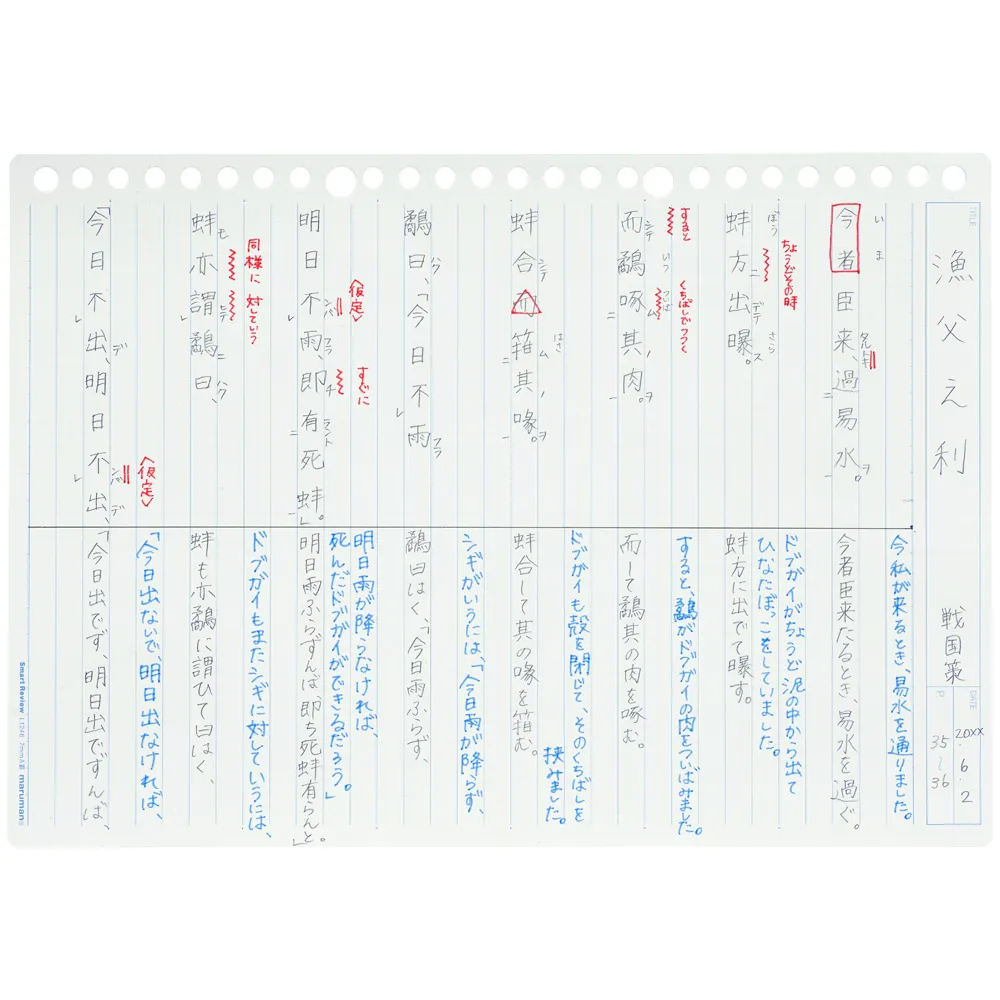 TITLE
漁父之利
戦国策
DATE
20XX・6・2
P 35~36
いま
今者臣来、過易水。
タルトキ ヲ
二 一
ちょうどその時
ぼう ニ デテ さら ス
蚌方出曝。
すると
くちばしでつつく
シテ いつ ついば ム ノ ヲ
而鷸啄其肉。
二 一
シテ はさ ム ノ ヲ
蚌合而箝其喙。
二 一
ハク フラ
鷸曰、「今日不雨
レ
〈仮定〉
すぐに
ンバ フラ チ ラント
明日不雨、即有死蚌。」
レ 二 一
同様に
対していう
モ ヒテ ニ ハク
蚌亦謂鷸曰、
レ
〈仮定〉
デ ンバ デ
「今日不出、明日不出、
レ レ
今私が来るとき、易水を通りました。
今者臣来たるとき、易水を過ぐ。
ドブガイがちょうど泥の中から出て
ひなたぼっこをしていました。
蚌方に出でて曝す。
すると、鷸がドブガイの肉をついばみました。
而して鷸其の肉を啄む。
ドブガイも殻を閉じて、そのくちばしを
挟みました。
蚌合して其の喙を箝む。
シギがいうには、「今日雨が降らず、
鷸曰はく、「今日雨ふらず、
明日雨が降らなければ、
死んだドブガイができるだろう。」
明日雨ふらずんば、即ち死蚌有らんと。」
ドブガイもまたシギに対していうには、
蚌も亦鷸に謂ひて曰はく、
「今日出ないで、明日出なければ、
「今日出でず、明日出でずんば、
Smart Review L1246 7mm×A罫 maruman